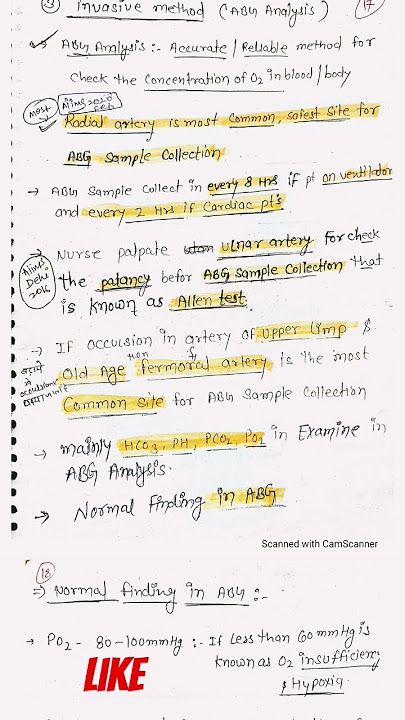 ③ Invasive method (ABG Analysis) 17
ABG Analysis :- Accurate / Reliable method for
check the concentration of O2 in blood / body
most Aiims 2020 Feb
Radial artery is most common, safest site for
ABG Sample Collection
→ ABG Sample Collect in every 8 Hrs if pt on ventilator
and every 2 Hrs if Cardiac pt's
→ Nurse palpate ulnar artery for check
Aiims Delhi 2016
the patancy befor ABG Sample Collection that
is known as Allen test.
→ If occulsion in artery of Upper limp &
Old Age then fermoral artery is the most
Common Site for ABG Sample Collection
→ mainly HCO3, PH, PCO2, PO2 in Examine in
ABG Analysis.
→ Normal Finding in ABG
Scanned with CamScanner
18
⇒ Normal finding in ABG :-
→ PO2 - 80-100mmHg :- If less than 60mmHg is
known as O2 insufficiency
& Hypoxia.
LIKE